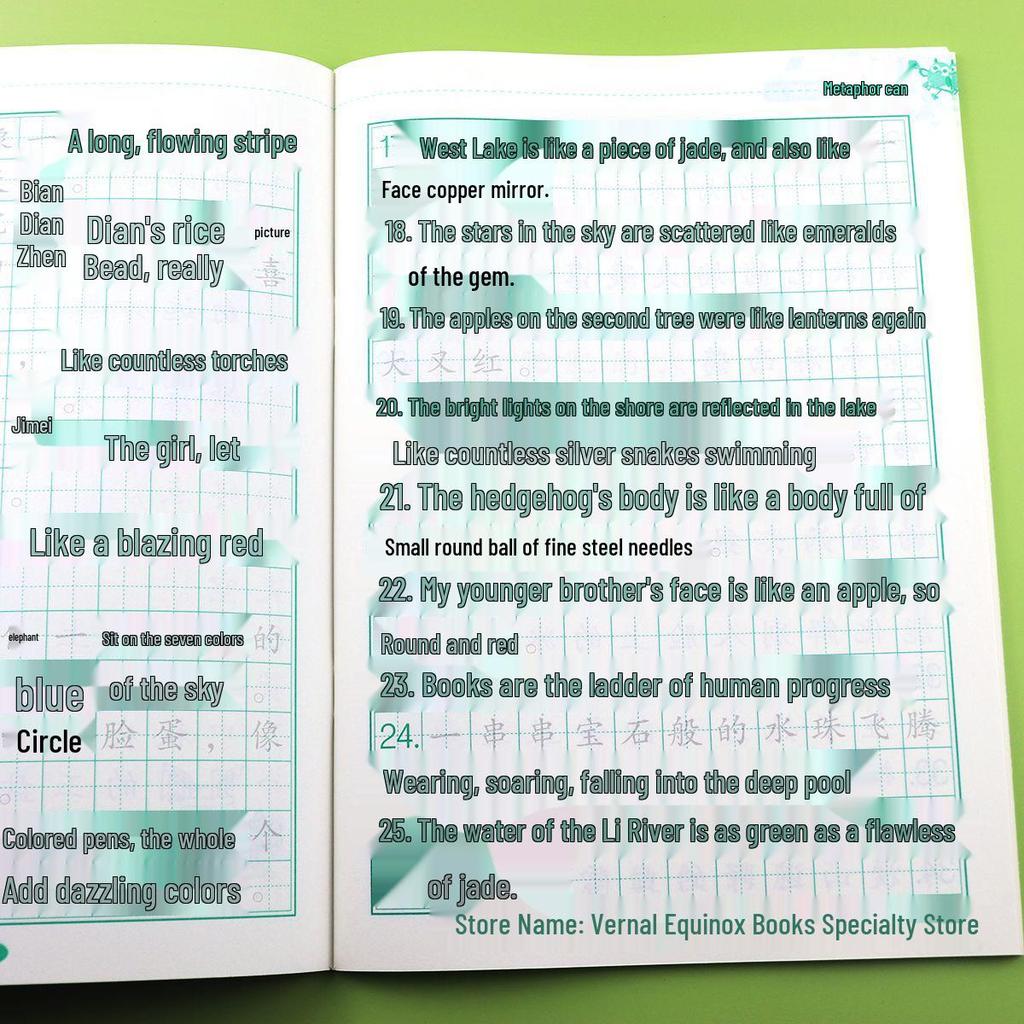 A long, flowing stripe
Bian
Dian
Zhen
Dian's rice
Bead, really
picture
喜
Like countless torches
Jimei
The girl, let
Like a blazing red
elephant 一 Sit on the seven colors 的
blue of the sky
Circle 脸蛋，像
Colored pens, the whole 个
Add dazzling colors
Metaphor can
1 West Lake is like a piece of jade, and also like
Face copper mirror.
18. The stars in the sky are scattered like emeralds
of the gem.
19. The apples on the second tree were like lanterns again
大又红。
20. The bright lights on the shore are reflected in the lake
Like countless silver snakes swimming
21. The hedgehog's body is like a body full of
Small round ball of fine steel needles
22. My younger brother's face is like an apple, so
Round and red
23. Books are the ladder of human progress
24. 一串串宝石般的水珠飞腾
Wearing, soaring, falling into the deep pool
25. The water of the Li River is as green as a flawless
of jade.
Store Name: Vernal Equinox Books Specialty Store